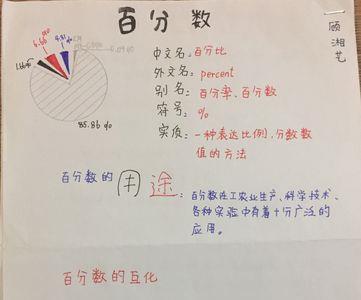 百分数
顾湘艺
85.86%
中文名:百分比
外文名:percent
别名:百分率、百分数
符号:%
实质:一种表达比例,分数数
值的方法
百分数的用途:百分数在工农业生产、科学技术、
各种实验中有着十分广泛的
应用。
百分数的互化